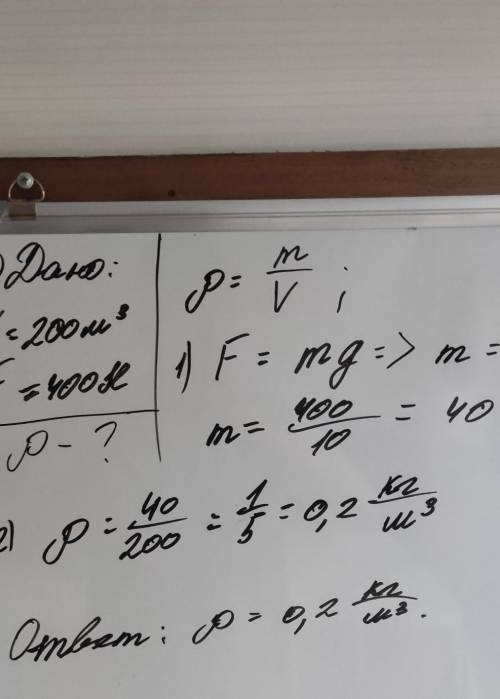 Дано:
= 200 м³
= 400 Н
ρ - ?
ρ = m/V ;
1) F = mg => m =
m = 400/10 = 40
2) ρ = 40/200 = 1/5 = 0,2 кг/м³
Ответ: ρ = 0,2 кг/м³.